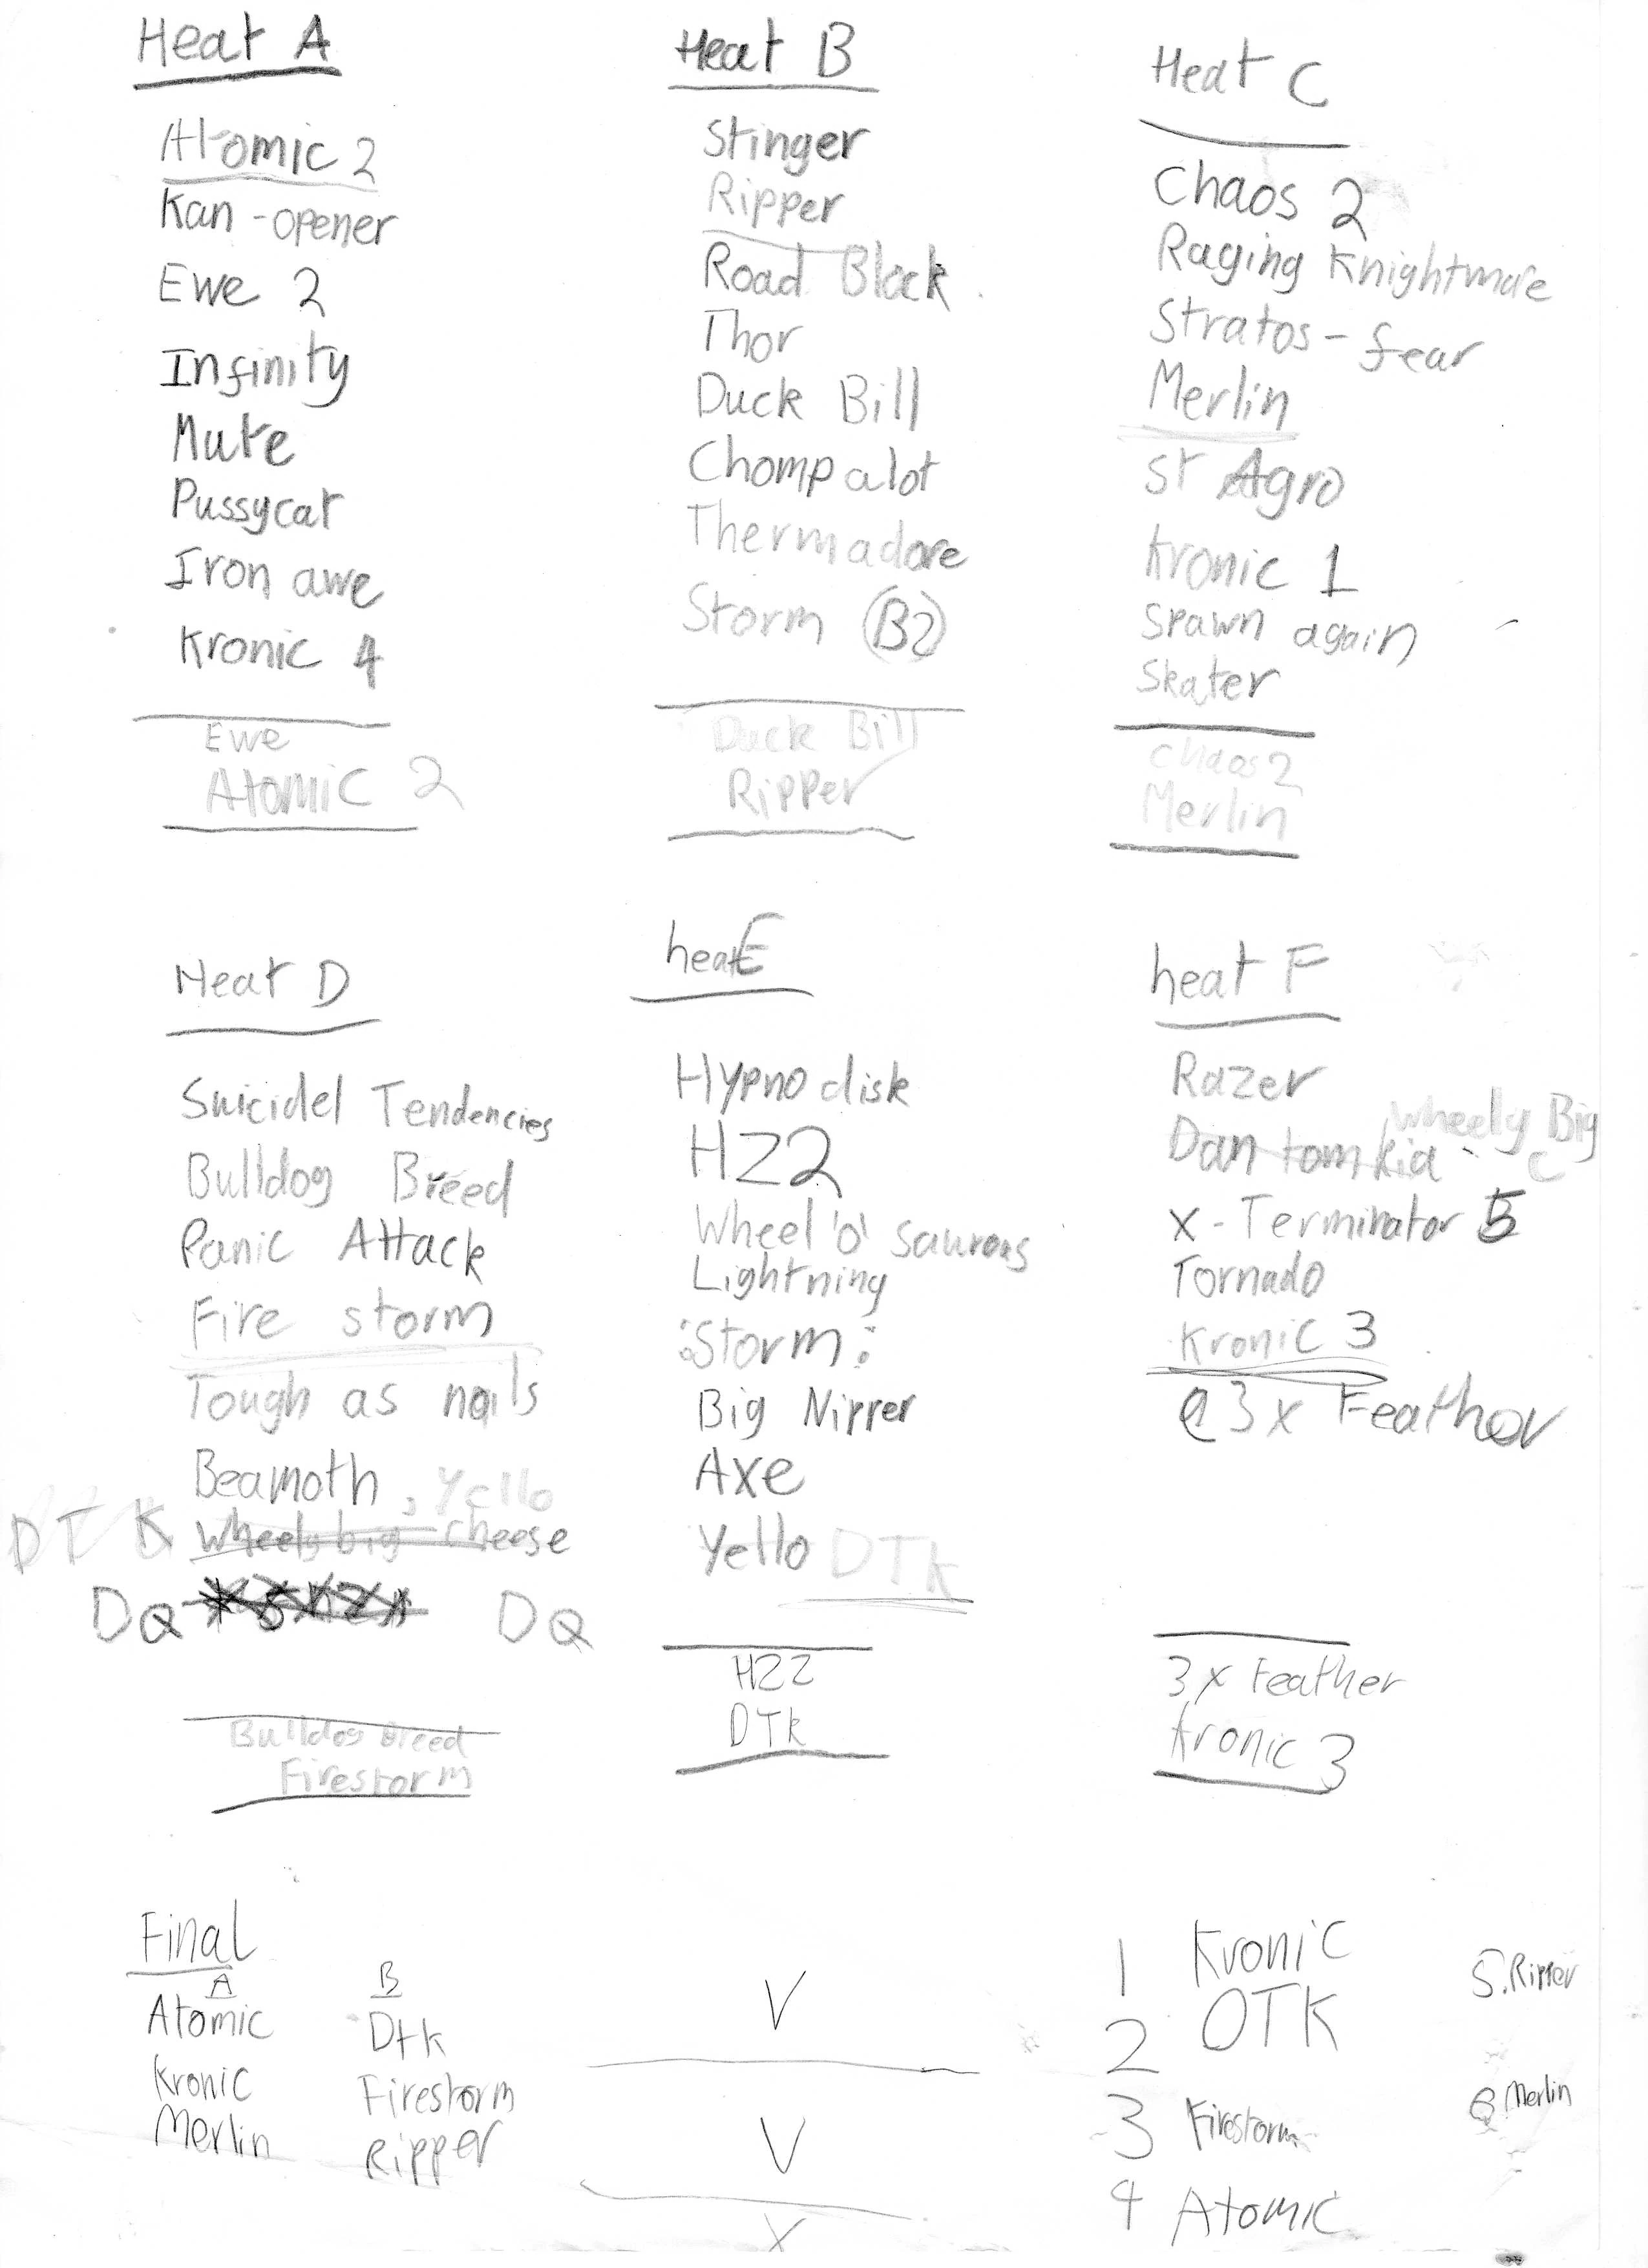 Heat A
Atomic 2
Kan-opener
Ewe 2
Infinity
Mute
Pussycat
Iron awe
Kronic 4
Ewe
Atomic 2
Heat B
Stinger
Ripper
Road Block
Thor
Duck Bill
Chompalot
Thermadore
Storm (B2)
Duck Bill
Ripper
Heat C
Chaos 2
Raging Knightmare
Stratos-fear
Merlin
St Agro
Kronic 1
Spawn again
Skater
Chaos 2
Merlin
Heat D
Suicidel Tendencies
Bulldog Breed
Panic Attack
Fire storm
Tough as nails
Beamoth, Yello
DTK Wheely big cheese
DQ DQ
Bulldog Breed
Firestorm
heat E
Hypno disk
HZ2
Wheel 'o' saurous
Lightning
:Storm:
Big Nipper
Axe
Yello DTK
HZ2
DTK
heat F
Razer
Dan tomkia Wheely Big C
X-Terminator 5
Tornado
Kronic 3
3x Feather
3x Feather
Kronic 3
Final
A
Atomic
Kronic
Merlin
B
Dtk
Firestorm
Ripper
V
V
X
1 Kronic
2 DTK
3 Firestorm
4 Atomic
5. Ripper
6 Merlin